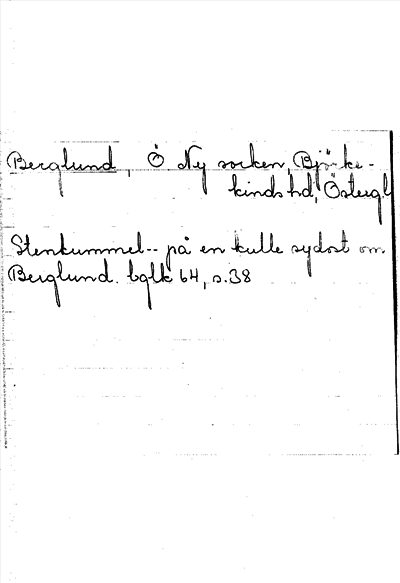 Berglund, Ö Ny socken, Björke-
kinds hd, Östergl
Stenkummel-- på en kulle sydost om
Berglund. bglk 64, s.38